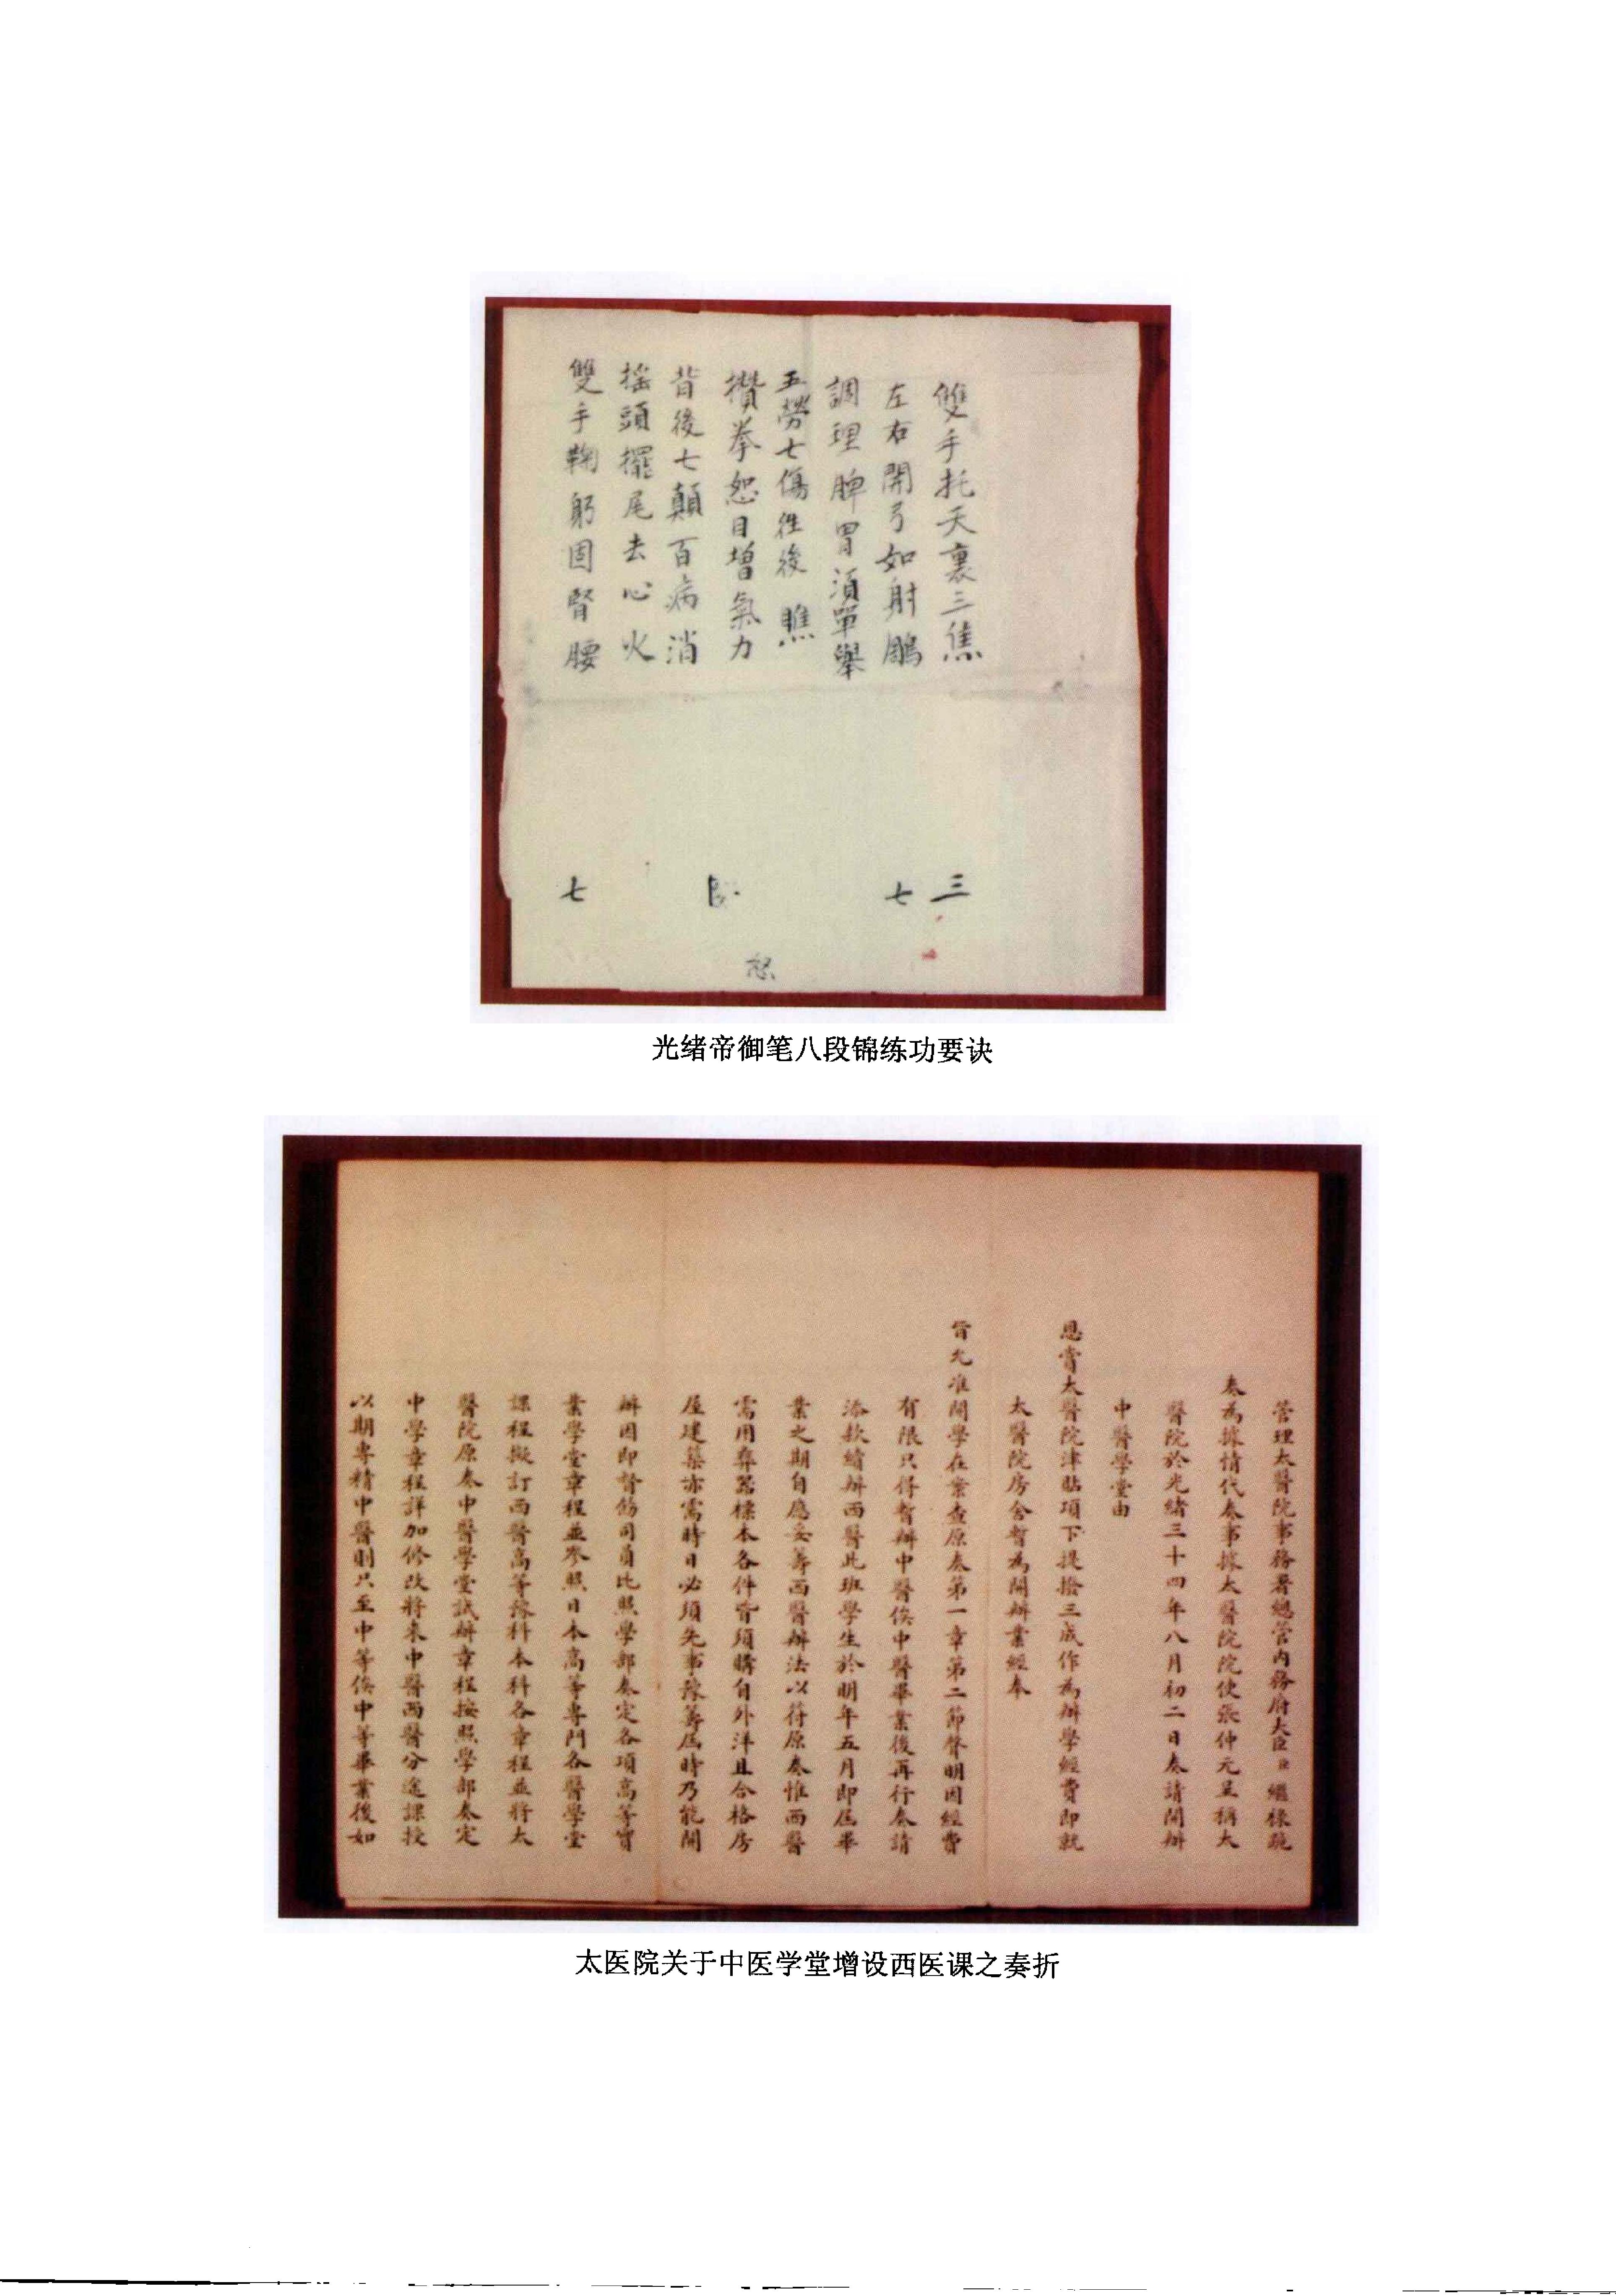 雙手托天裏三焦
左右開弓如射鵰
調理脾胃須單舉
五勞七傷徃後瞧
攢拳恕目增氣力
背後七顛百病消
搖頭擺尾去心火
雙手鞠躬固腎腰
三
七
七
恕
光绪帝御笔八段锦练功要诀
管理太醫院事務署總管內務府大臣臣繼祿跪
奏為據情代奏事據太醫院院使張仲元呈稱太
醫院於光緒三十四年八月初二日奏請開辦
中醫學堂由
恩賞太醫院津貼項下提撥三成作為辦學經費即就
太醫院房舍暫為開辦業經奉
旨允准開學在案查原奏第一章第二節聲明因經費
有限只得暫辦中醫俟中醫畢業後再行奏請
添款續辦西醫此班學生於明年五月即屆畢
業之期自應妥籌西醫辦法以符原奏惟西醫
需用藥器標本各件皆須購自外洋且合格房
屋建築亦需時日必須先事豫籌屆時乃能開
辦因即督飭司員比照學部奏定各項高等實
業學堂章程並參照日本高等專門各醫學堂
課程擬訂西醫高等豫科本科各章程並將太
醫院原奏中醫學堂試辦章程按照學部奏定
中學章程詳加修改將來中醫西醫分途課授
以期專精中醫則只至中等俟中等畢業後如
太医院关于中医学堂增设西医课之奏折